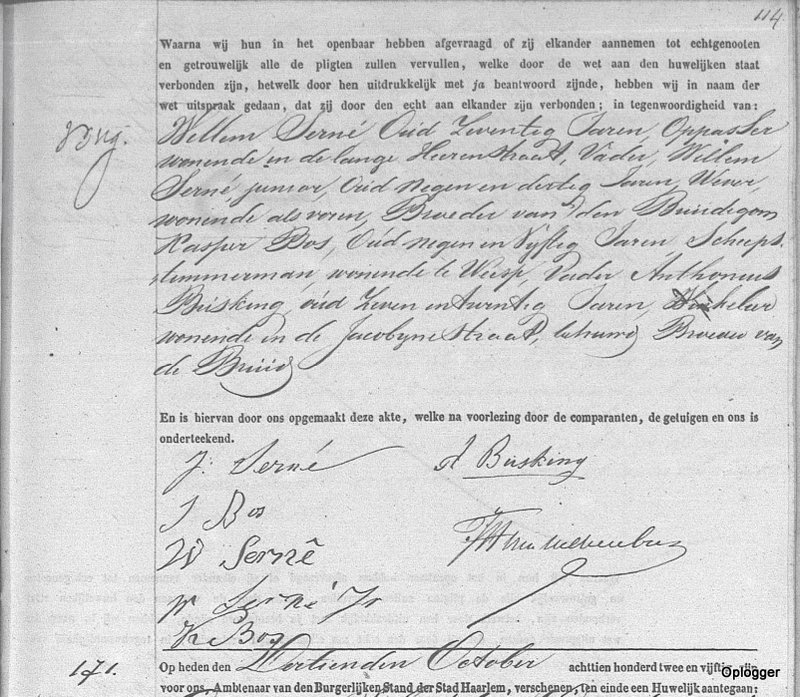 114
Waarna wij hun in het openbaar hebben afgevraagd of zij elkander aannemen tot echtgenooten
en getrouwelijk alle de pligten zullen vervullen, welke door de wet aan den huwelijken staat
verbonden zijn, hetwelk door hen uitdrukkelijk met ja beantwoord zijnde, hebben wij in naam der
wet uitspraak gedaan, dat zij door den echt aan elkander zijn verbonden; in tegenwoordigheid van:
Willem Serné Oud Zeventig Jaren, Oppasser
wonende in de lange Heerenstraat, Vader, Willem
Serné junior, Oud negen en dertig Jaren, Wever,
wonende als voren, Broeder van den Bruidegom
Kasper Bos, Oud negen en Vijftig Jaren Scheeps
timmerman, wonende te Weesp, Vader Anthonius
Büsking, oud Zeven en twintig Jaren, Winkelier
wonende in de Jacobijne Straat, behuwd Broeder van
de Bruid
En is hiervan door ons opgemaakt deze akte, welke na voorlezing door de comparanten, de getuigen en ons is
onderteekend.
J: Serné
A Büsking
J Bos
W Serné
W Serné Jr
K Bos
171.
Op heden den Dertienden October achttien honderd twee en vijftig zijn
voor ons, Ambtenaar van den Burgerlijken Stand der Stad Haarlem, verschenen, ten einde een Huwelijk aantegaan:
Oplogger